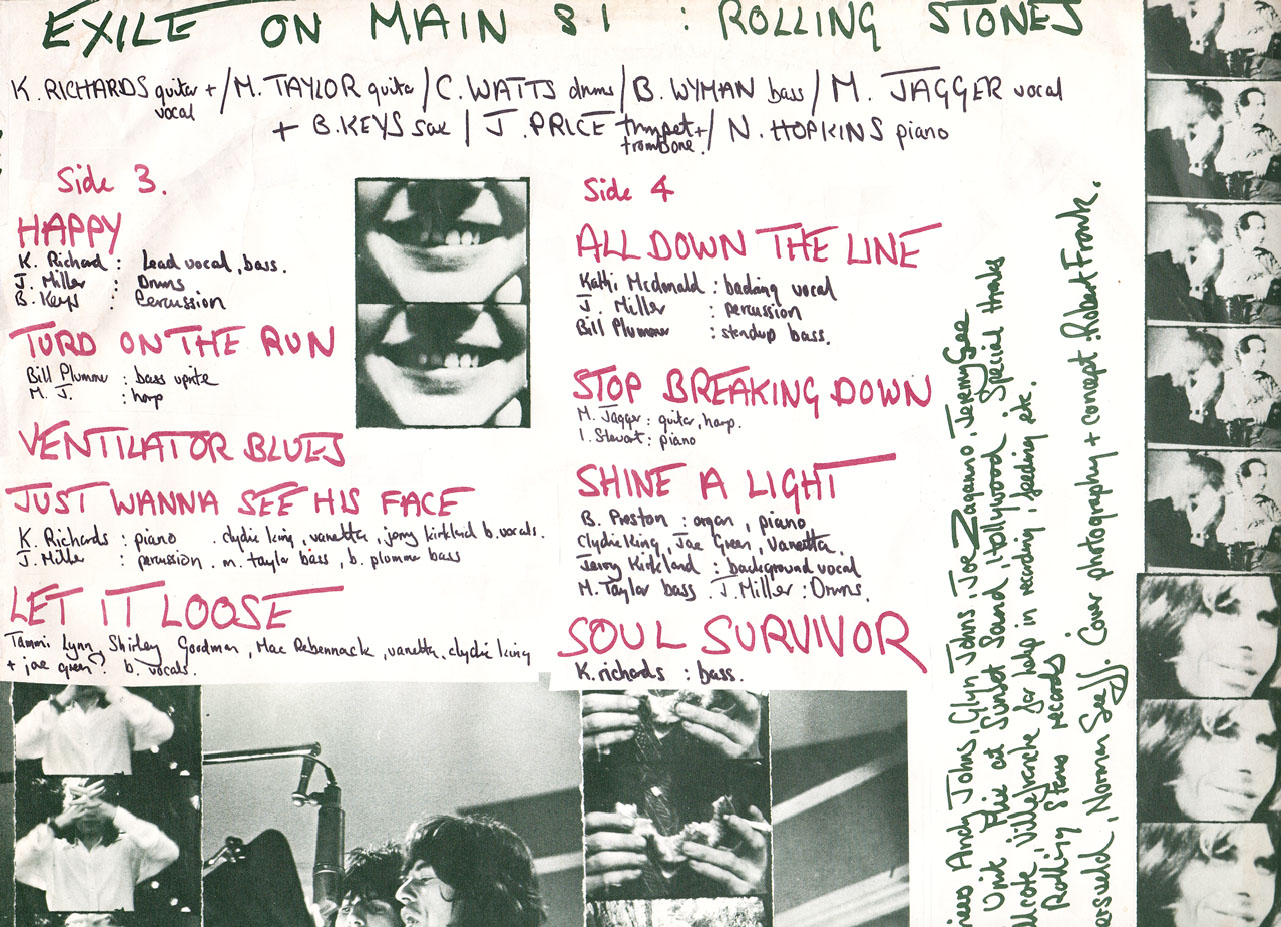 EXILE ON MAIN ST : ROLLING STONES
K. RICHARDS guitar + vocal / M. TAYLOR guitar / C. WATTS drums / B. WYMAN bass / M. JAGGER vocal
+ B. KEYS sax / J. PRICE trumpet + trombone. / N. HOPKINS piano
Side 3.
HAPPY
K. Richard : Lead vocal, bass.
J. Miller : Drums
B. Keys : Percussion
TURD ON THE RUN
Bill Plummer : bass uprite
M. J. : harp
VENTILATOR BLUES
JUST WANNA SEE HIS FACE
K. Richards : piano . clydie king, vanetta, jerry kirkland b. vocals.
J. Miller : percussion. m. taylor bass, b. plummer bass
LET IT LOOSE
Tammi Lynn, Shirley Goodman, Mac Rebennack, vanetta, clydie king
+ joe green? b. vocals.
Side 4
ALL DOWN THE LINE
Kathi Mcdonald : backing vocal
J. Miller : percussion
Bill Plummer : standup bass.
STOP BREAKING DOWN
M. Jagger : guitar, harp.
I. Stewart : piano
SHINE A LIGHT
B. Preston : organ, piano
Clydie King, Joe Green, Vanetta,
Jerry Kirkland : background vocal
M. Taylor bass. J. Miller : Drums.
SOUL SURVIVOR
K. richards : bass.
Andy Johns, Glyn Johns, Joe Zagarino, Jeremy Gee
Unit Five at Sunset Sound, Hollywood Special thanks
Villefranche for help in recording, feeding etc.
Rolling Stones records
Norman Seeff. Cover photography + concept : Robert Frank.